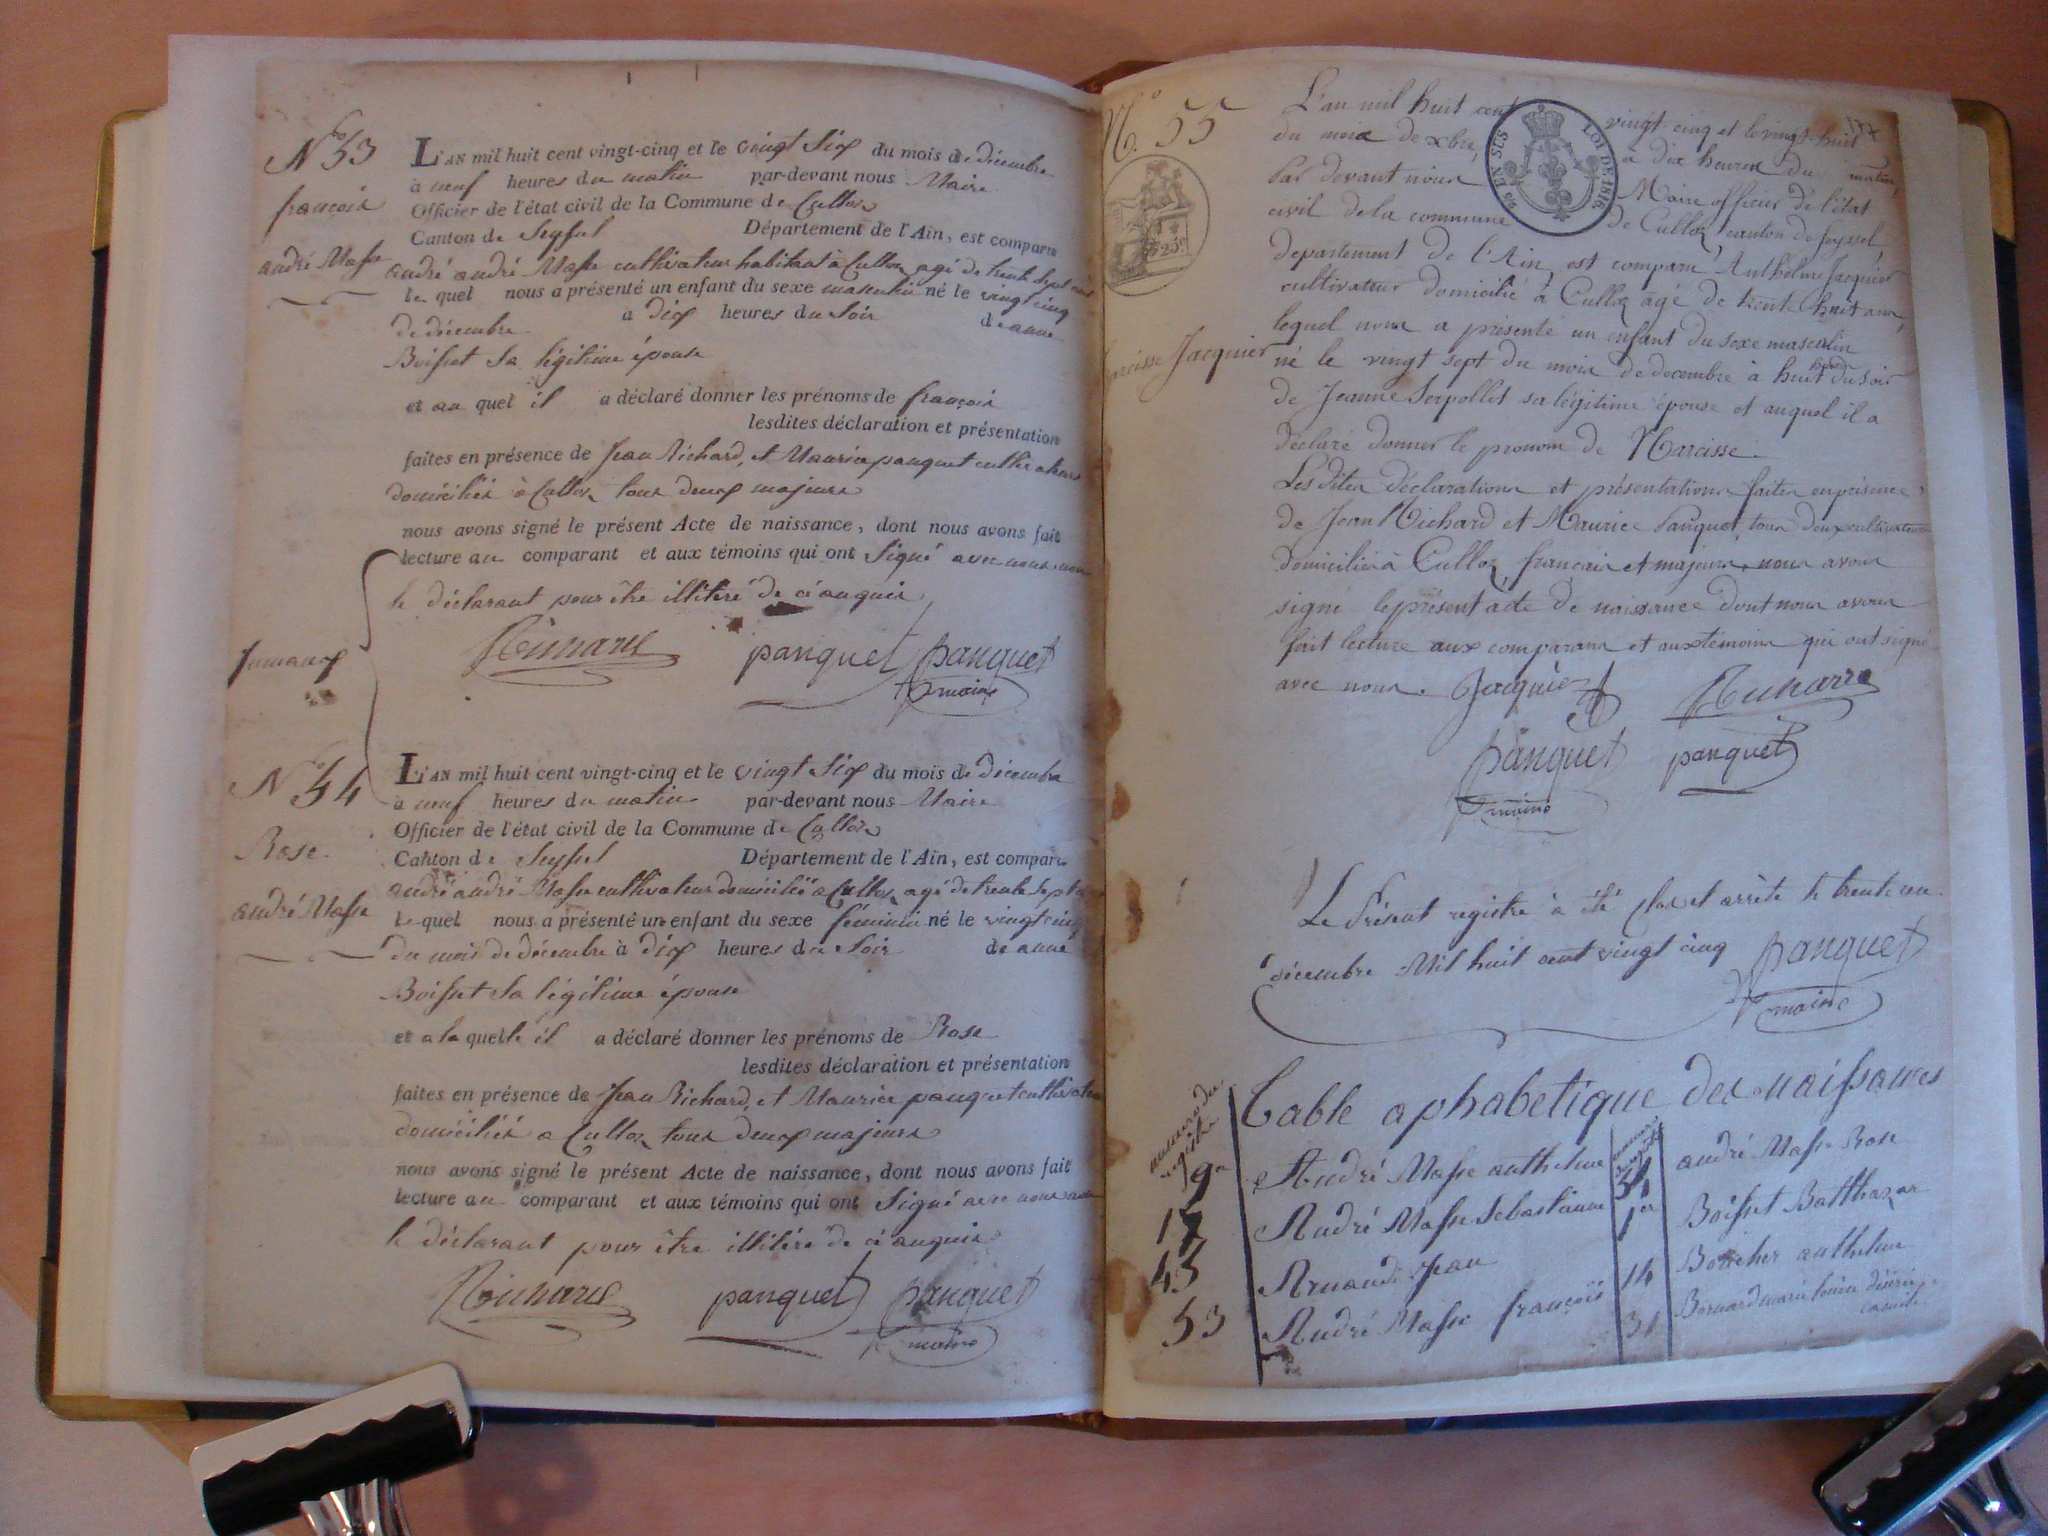 No 53
françois
andré Masse
L'AN mil huit cent vingt-cinq et le vingt Six du mois de décembre
à neuf heures du matin par-devant nous Maire
Officier de l'état civil de la Commune de Culloz
Canton de Seyssel Département de l'Ain, est comparu
andré andré Masse cultivateur habitant à Culloz agé de trente sept ans
le quel nous a présenté un enfant du sexe masculin né le vingt cinq
de décembre à dix heures du Soir de anne
Boisset Sa légitime épouse
et au quel il a déclaré donner les prénoms de françois
lesdites déclaration et présentation
faites en présence de Jean Richard, et Maurice panquet cultivateurs
domiciliés à Culloz tous deux majeurs
nous avons signé le présent Acte de naissance, dont nous avons fait
lecture au comparant et aux témoins qui ont Signé avec nous non
le déclarant pour être illitéré de ce anquis
Jumaux
Richard panquet panquet
maire
No 54
Rose
andré Masse
L'AN mil huit cent vingt-cinq et le vingt Six du mois de décembre
à neuf heures du matin par-devant nous Maire
Officier de l'état civil de la Commune de Culloz
Canton de Seyssel Département de l'Ain, est comparu
andré andré Masse cultivateur domicilié a Culloz agé de trente sept ans
le quel nous a présenté un enfant du sexe féminin né le vingt cinq
du mois de décembre à dix heures du Soir de anne
Boisset Sa légitime épouse
et a la quelle il a déclaré donner les prénoms de Rose
lesdites déclaration et présentation
faites en présence de Jean Richard, et Maurice panquet cultivateurs
domiciliés a Culloz tous deux majeurs
nous avons signé le présent Acte de naissance, dont nous avons fait
lecture au comparant et aux témoins qui ont Signé avec nous non
le déclarant pour être illitéré de ce anquis
Richard panquet panquet
maire
177
N.o 55
Narcisse Jacquier
25c
EN SUS
LOI DE 1816.
L'an mil huit cent vingt-cinq et le vingt-huit
du mois de xbre, à dix heures du matin,
Par devant nous Maire officier de l'état
civil de la commune de Culloz, canton de Seyssel,
département de l'Ain, est comparu Anthelme Jacquier
cultivateur domicilié à Culloz agé de trente-huit ans,
lequel nous a présenté un enfant du sexe masculin
né le vingt sept du mois de decembre à huit heures du soir
de Jeanne Serpollet sa légitime épouse et auquel il a
déclaré donner le prenom de Narcisse.
Les dites déclarations et présentations faites en présence
de Jean Richard et Maurice Panquet, tous deux cultivateurs
domiciliés à Culloz, francais et majeurs, nous avons
signé le présent acte de naissance dont nous avons
fait lecture aux comparans et aux témoins qui ont signé
avec nous. Jacquier Richard
panquet panquet
maire
Le Présent registre à été Clos et arrèté le trente un
décembre Mil huit cent vingt cinq panquet
maire
Table aphabetique des naissances
numero du registre
9 André Masse anthelme
17 André Masse Sebastienne
43 Arnaud Jean
53 André Masse françois
54 andré Masse Rose
1er Boisset Balthazar
14 Boucher anthelme
31 Bornard marie louise désirée
camile